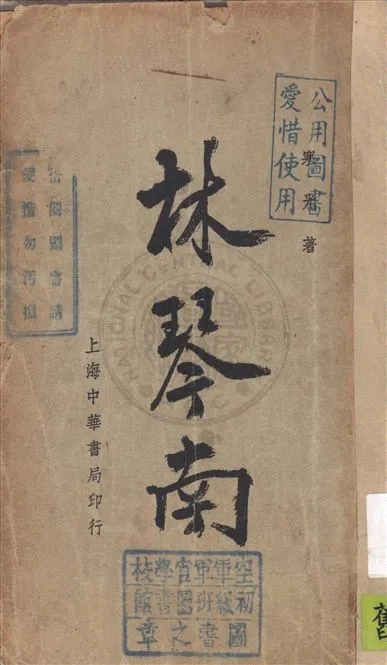 公用圖書
愛惜使用
著
林琴南
上海中華書局印行
借閱圖書請
愛惜勿污損
空軍軍官學校
初級班圖書館
圖書之章
NATIONAL CENTRAL LIBRARY
舊